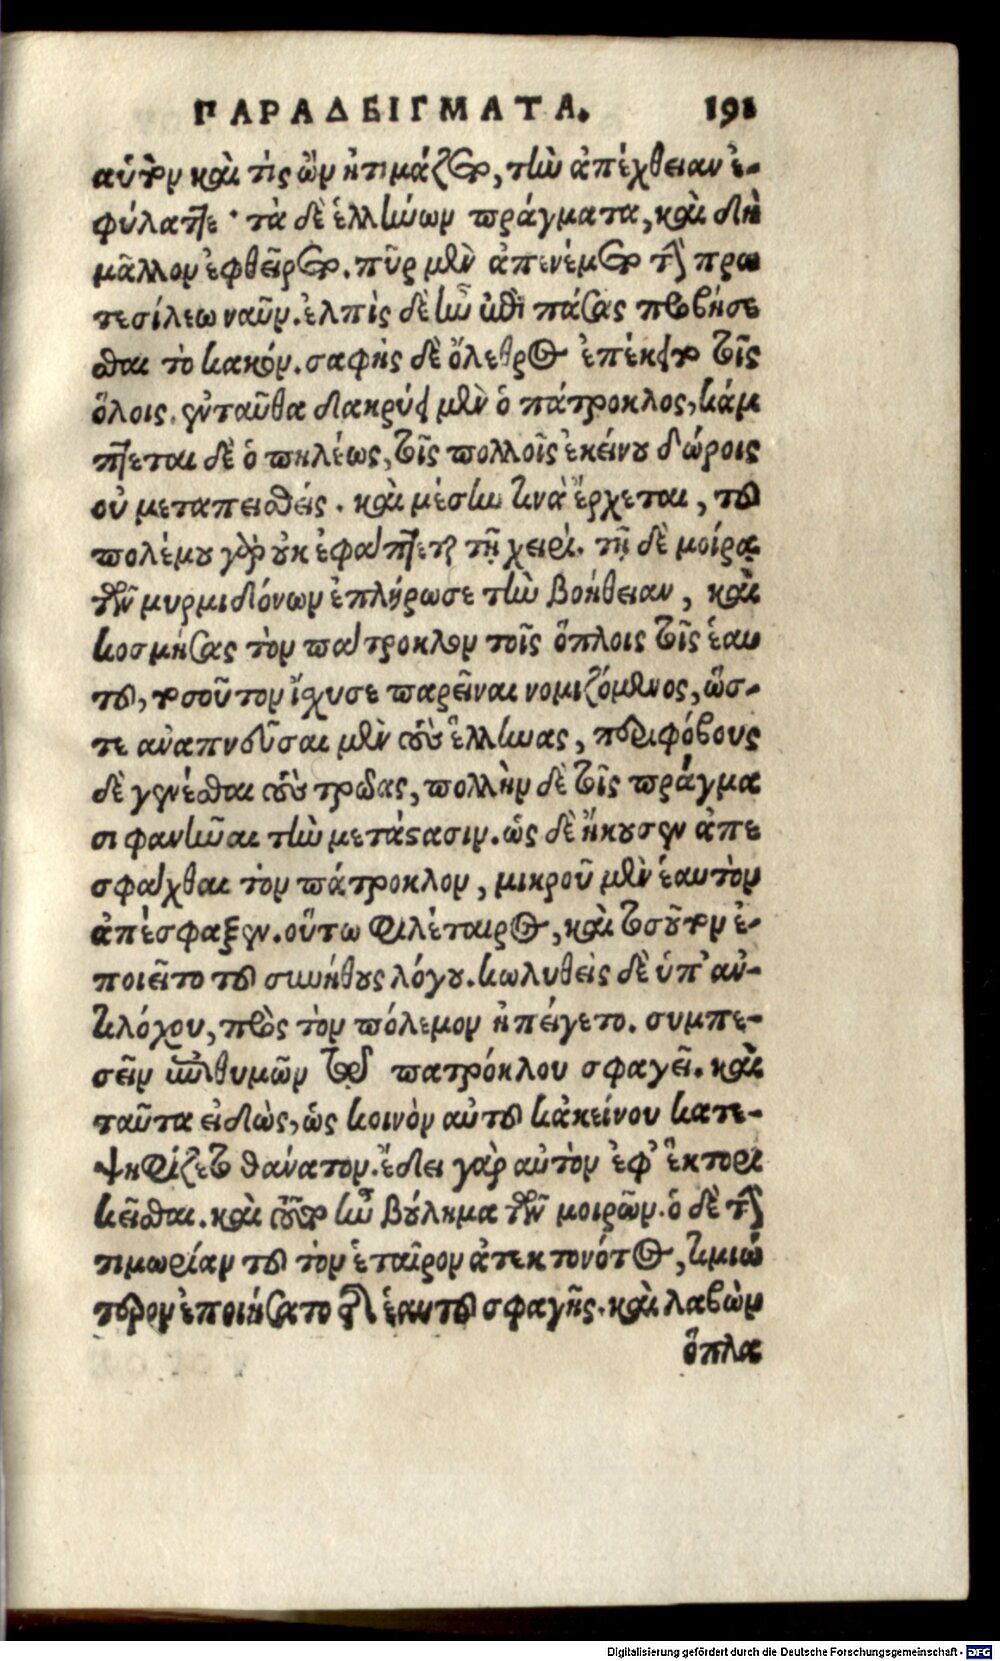 ΠΑΡΑΔΕΙΓΜΑΤΑ. 191
αὐτὸν καὶ τίς ὢν ἠτιμάζετο, τὴν ἀπέχθειαν ἐ-
φύλαττε· τὰ δὲ ἑλλήνων πράγματα, καὶ δὴ
μᾶλλον ἐφθείρετο. πῦρ μὲν ἀπενέμετο τὴν πρω
τεσίλεω ναῦν. ἐλπὶς δὲ ἦν ἐπὶ πάσας προβήσε
σθαι τὸ κακόν. σαφὴς δὲ ὄλεθρος ἐπέκειτο τοῖς
ὅλοις. ἐνταῦθα δακρύει μὲν ὁ πάτροκλος, κάμ
πτεται δὲ ὁ πηλέως, τοῖς πολλοῖς ἐκείνου δώροις
οὐ μεταπεισθείς. καὶ μέσην τινὰ ἔρχεται, τοῦ
πολέμου γὰρ οὐκ ἐφάπτεται τῇ χειρί. τῇ δὲ μοίρᾳ
τῶν μυρμιδόνων ἐπλήρωσε τὴν βοήθειαν, καὶ
κοσμήσας τὸν πάτροκλον τοῖς ὅπλοις τοῖς ἑαυ
τοῦ, τοσοῦτον ἴχυσε παρεῖναι νομιζόμενος, ὥσ-
τε ἀναπνεῦσαι μὲν τοὺς ἕλληνας, περιφόβους
δὲ γενέσθαι τοὺς τρῶας, πολλὴν δὲ τοῖς πράγμα
σι φανῆναι τὴν μετάστασιν. ὡς δὲ ἤκουσεν ἀπε
σφάχθαι τὸν πάτροκλον, μικροῦ μὲν ἑαυτὸν
ἀπέσφαξεν. οὕτω φιλέταιρος, καὶ τοσοῦτον ἐ-
ποιεῖτο τοῦ συνήθους λόγου. κωλυθεὶς δὲ ὑπ' ἀν-
τιλόχου, πρὸς τὸν πόλεμον ἠπείγετο. συμπε-
σεῖν ἐπιθυμῶν τῷ πατρόκλου σφαγεῖ. καὶ
ταῦτα εἰδὼς, ὡς κοινὸν αὐτοῦ κἀκείνου κατε-
ψηφίζετο θάνατον. ἔδει γὰρ αὐτὸν ἐφ' ἕκτορι
κεῖσθαι. καὶ τοῦτο ἦν βούλημα τῶν μοιρῶν. ὁ δὲ τὴν
τιμωρίαν τοῦ τὸν ἑταῖρον ἀπεκτονότος, τιμιώ
τερον ἐποιήσατο τῆς ἑαυτοῦ σφαγῆς. καὶ λαβὼν
ὅπλα
Digitalisierung gefördert durch die Deutsche Forschungsgemeinschaft - DFG